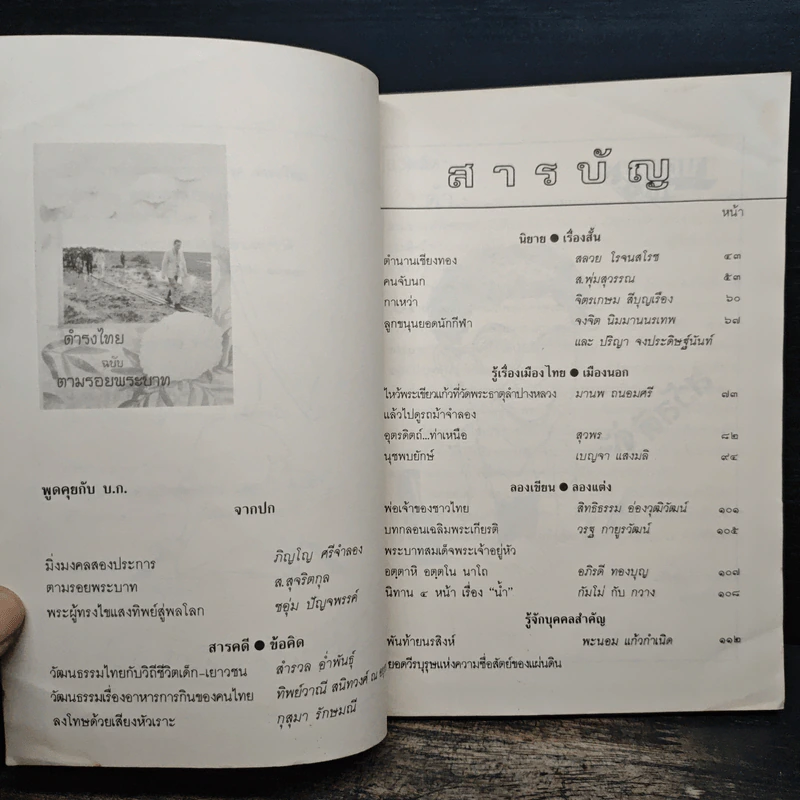 ดำรงไทย
ฉบับ
ตามรอยพระบาท
พูดคุยกับ บ.ก.
จากปก
มิ่งมงคลสองประการ ภิญโญ ศรีจำลอง
ตามรอยพระบาท ส.สุจริตกุล
พระผู้ทรงไขแสงทิพย์สู่พลโลก ชอุ่ม ปัญจพรรค์
สารคดี ● ข้อคิด
วัฒนธรรมไทยกับวิถีชีวิตเด็ก-เยาวชน สำรวล อ่ำพันธุ์
วัฒนธรรมเรื่องอาหารการกินของคนไทย ทิพย์วาณี สนิทวงศ์ ณ
ลงโทษด้วยเสียงหัวเราะ กุสุมา รักษมณี
สารบัญ
หน้า
นิยาย ● เรื่องสั้น
ตำนานเชียงทอง สลวย โรจนสโรช ๔๓
คนจับนก ส.พุ่มสุวรรณ ๕๓
กาเหว่า จิตรเกษม สีบุญเรือง ๖๐
ลูกขนุนยอดนักกีฬา จงจิต นิมมานนรเทพ ๖๗
และ ปริญา จงประดิษฐ์นันท์
รู้เรื่องเมืองไทย ● เมืองนอก
ไหว้พระเขียวแก้วที่วัดพระธาตุลำปางหลวง มานพ ถนอมศรี ๗๓
แล้วไปดูรถม้าจำลอง
อุตรดิตถ์...ท่าเหนือ สุวพร ๘๒
นุชพบยักษ์ เบญจา แสงมลิ ๙๔
ลองเขียน ● ลองแต่ง
พ่อเจ้าของชาวไทย สิทธิธรรม อ่องวุฒิวัฒน์ ๑๐๑
บทกลอนเฉลิมพระเกียรติ วรฐ กายูรวัฒน์ ๑๐๕
พระบาทสมเด็จพระเจ้าอยู่หัว
อตฺตาหิ อตฺตโน นาโถ อภิรตี ทองบุญ ๑๐๗
นิทาน ๔ หน้า เรื่อง "น้ำ" กัมไม่ กับ กวาง ๑๐๘
รู้จักบุคคลสำคัญ
พันท้ายนรสิงห์ พะนอม แก้วกำเนิด ๑๑๒
ยอดวีรบุรุษแห่งความซื่อสัตย์ของแผ่นดิน